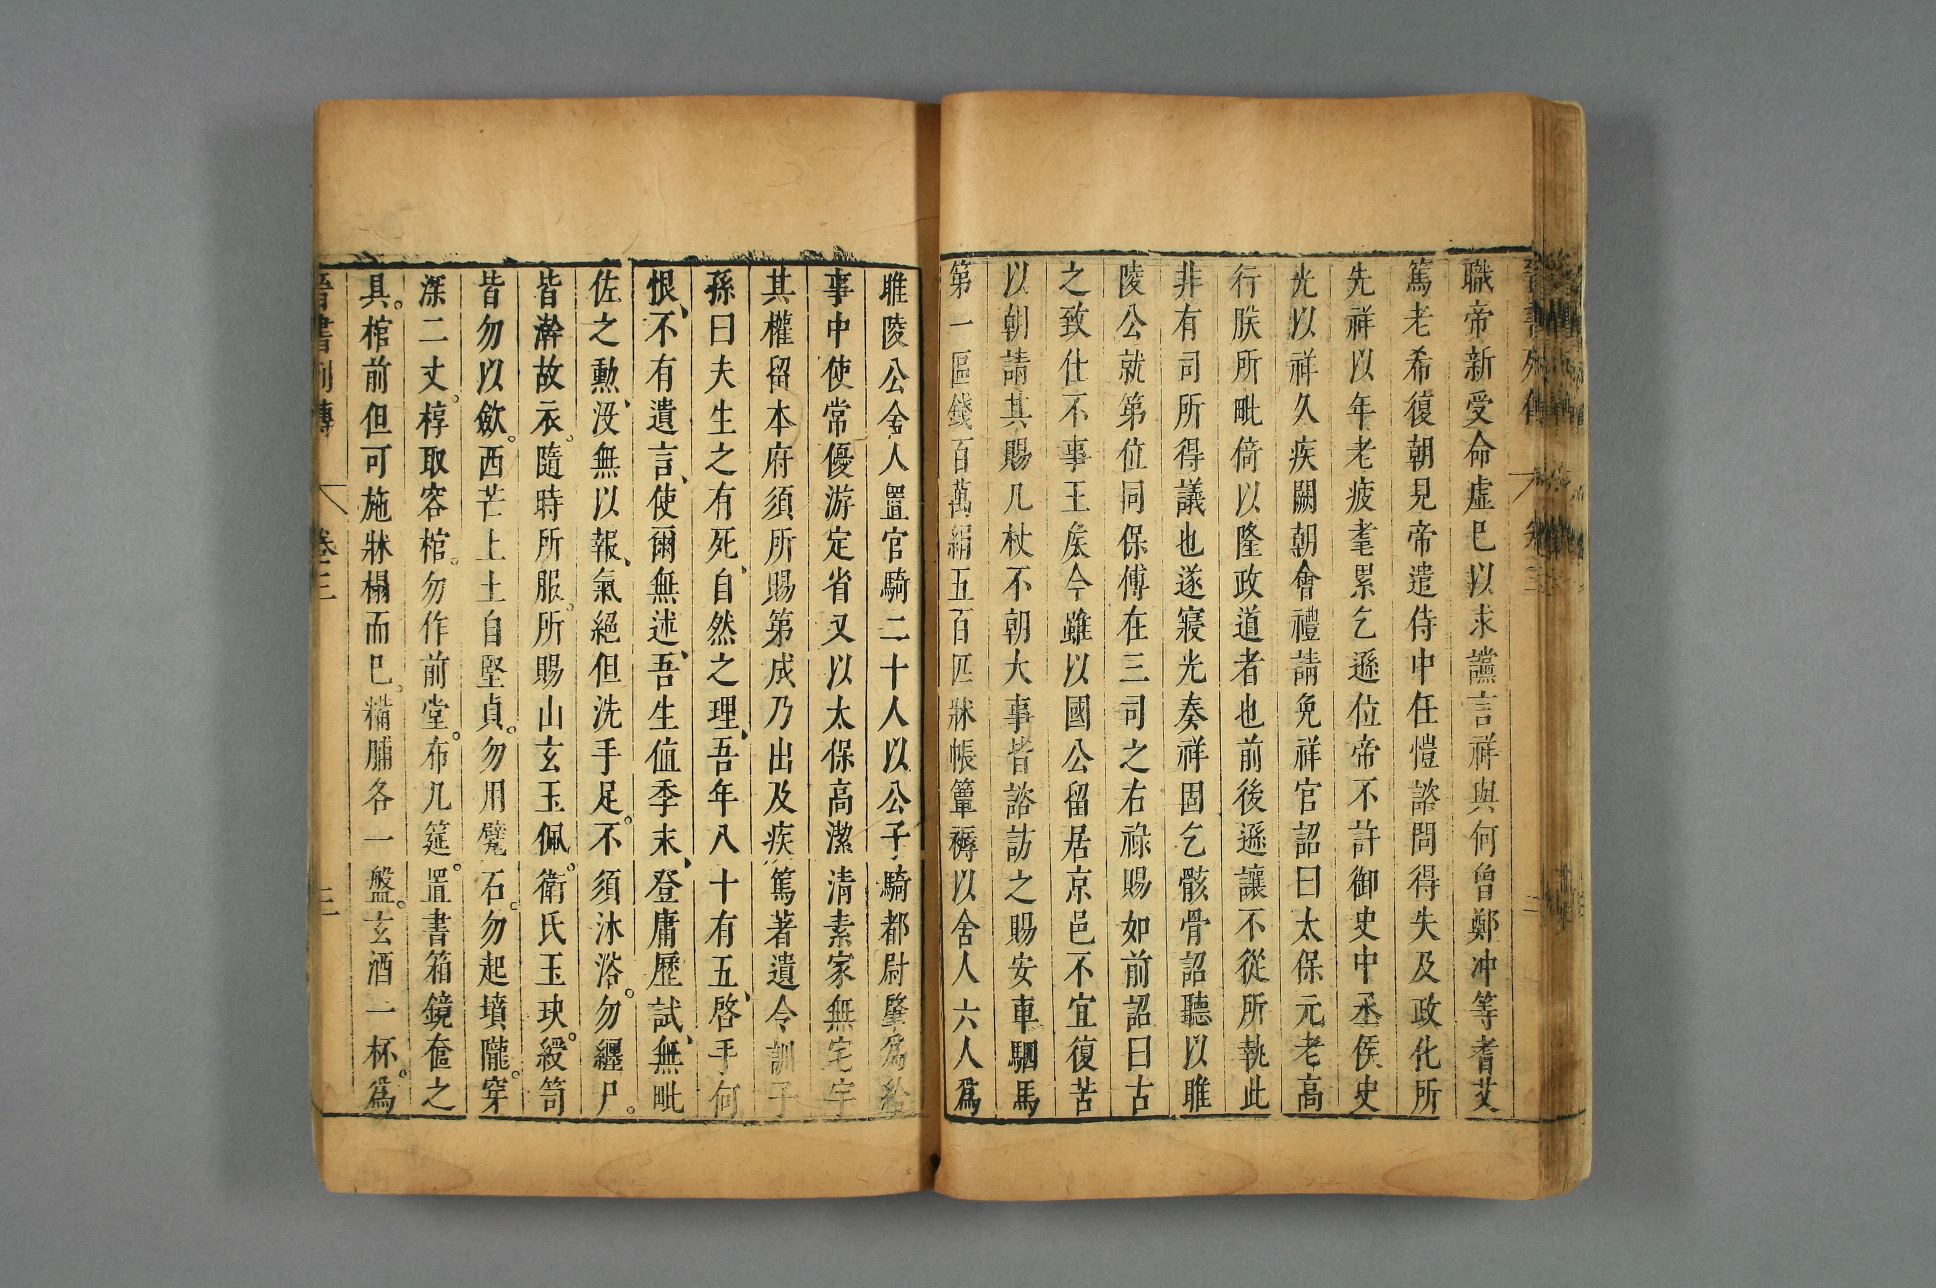 晉書列傳 卷三 二
職帝新受命虛已以求讜言祥與何曾鄭冲等耆艾
篤老希復朝見帝遣侍中任愷諮問得失及政化所
先祥以年老疲耄累乞遜位帝不許御史中丞侯史
光以祥久疾闕朝會禮請免祥官詔曰太保元老高
行朕所毗倚以隆政道者也前後遜讓不從所執此
非有司所得議也遂寢光奏祥固乞骸骨詔聽以睢
陵公就第位同保傅在三司之右祿賜如前詔曰古
之致仕不事王矦今雖以國公留居京邑不宜復苦
以朝請其賜几杖不朝大事皆諮訪之賜安車駟馬
第一區錢百萬絹五百匹牀帳簟褥以舍人六人爲
睢陵公舍人置官騎二十人以公子騎都尉肇爲給
事中使常優游定省又以太保高潔清素家無宅宇
其權留本府須所賜第成乃出及疾篤著遺令訓子
孫曰夫生之有死、自然之理、吾年八十有五、啓手何
恨、不有遺言、使爾無述、吾生值季末、登庸歷試、無毗
佐之勳、没無以報、氣絕但洗手足。不須沐浴。勿纏尸。
皆澣故衣。隨時所服。所賜山玄玉佩。衛氏玉玦。綬笥
皆勿以斂。西芒上土自堅貞。勿用甓石。勿起墳隴。穿
深二丈。椁取容棺。勿作前堂。布几筵。置書箱鏡奩之
具。棺前但可施牀榻而已。糒脯各一盤。玄酒一杯。爲
晉書列傳 卷三 三